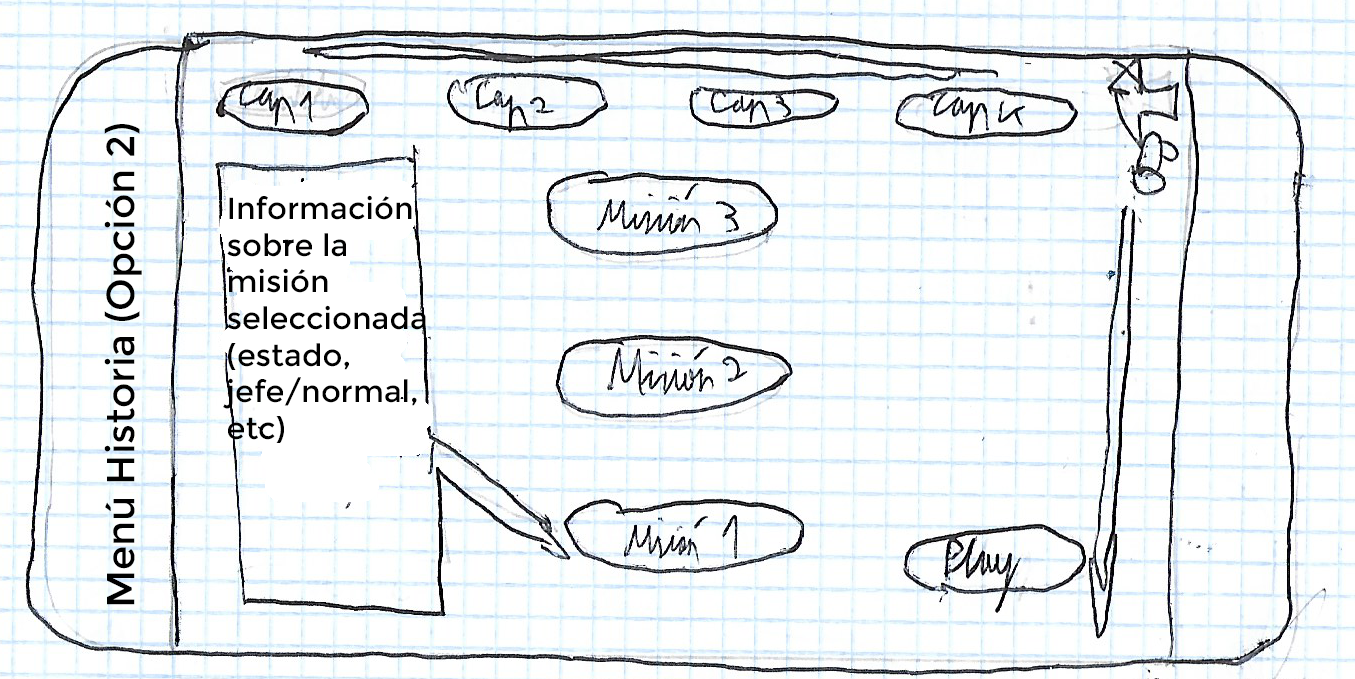 Menú Historia (Opción 2)
Cap 1
Cap 2
Cap 3
Cap 4
Información
sobre la
misión
seleccionada
(estado,
jefe/normal,
etc)
Misión 3
Misión 2
Misión 1
Play